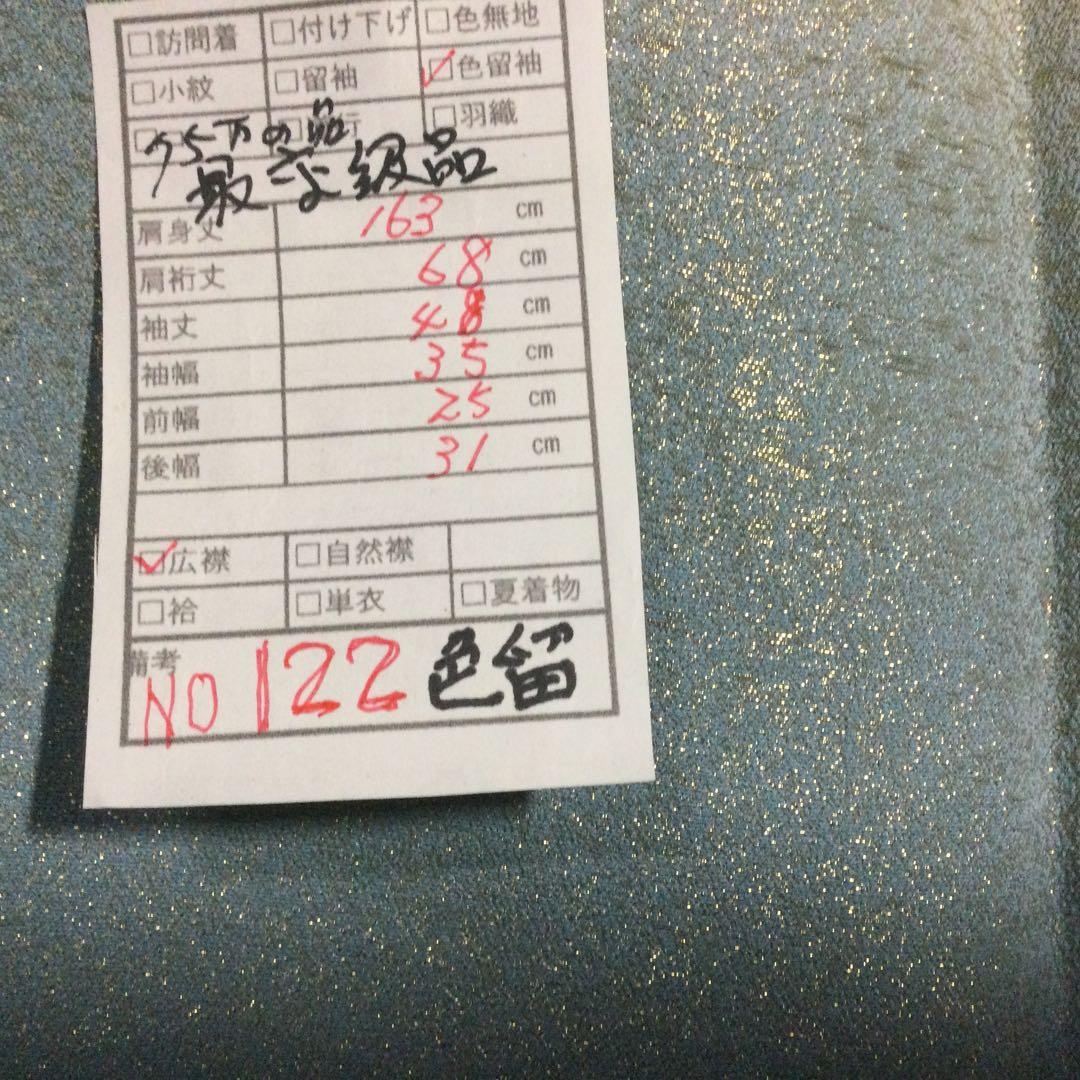 □訪問着 □付け下げ □色無地
□小紋 □留袖 ☑色留袖
□羽織
75万の品
最高級品
肩身丈 163 cm
肩裄丈 68 cm
袖丈 48 cm
袖幅 35 cm
前幅 25 cm
後幅 31 cm
☑広襟 □自然襟
□袷 □単衣 □夏着物
備考
NO 122 色留